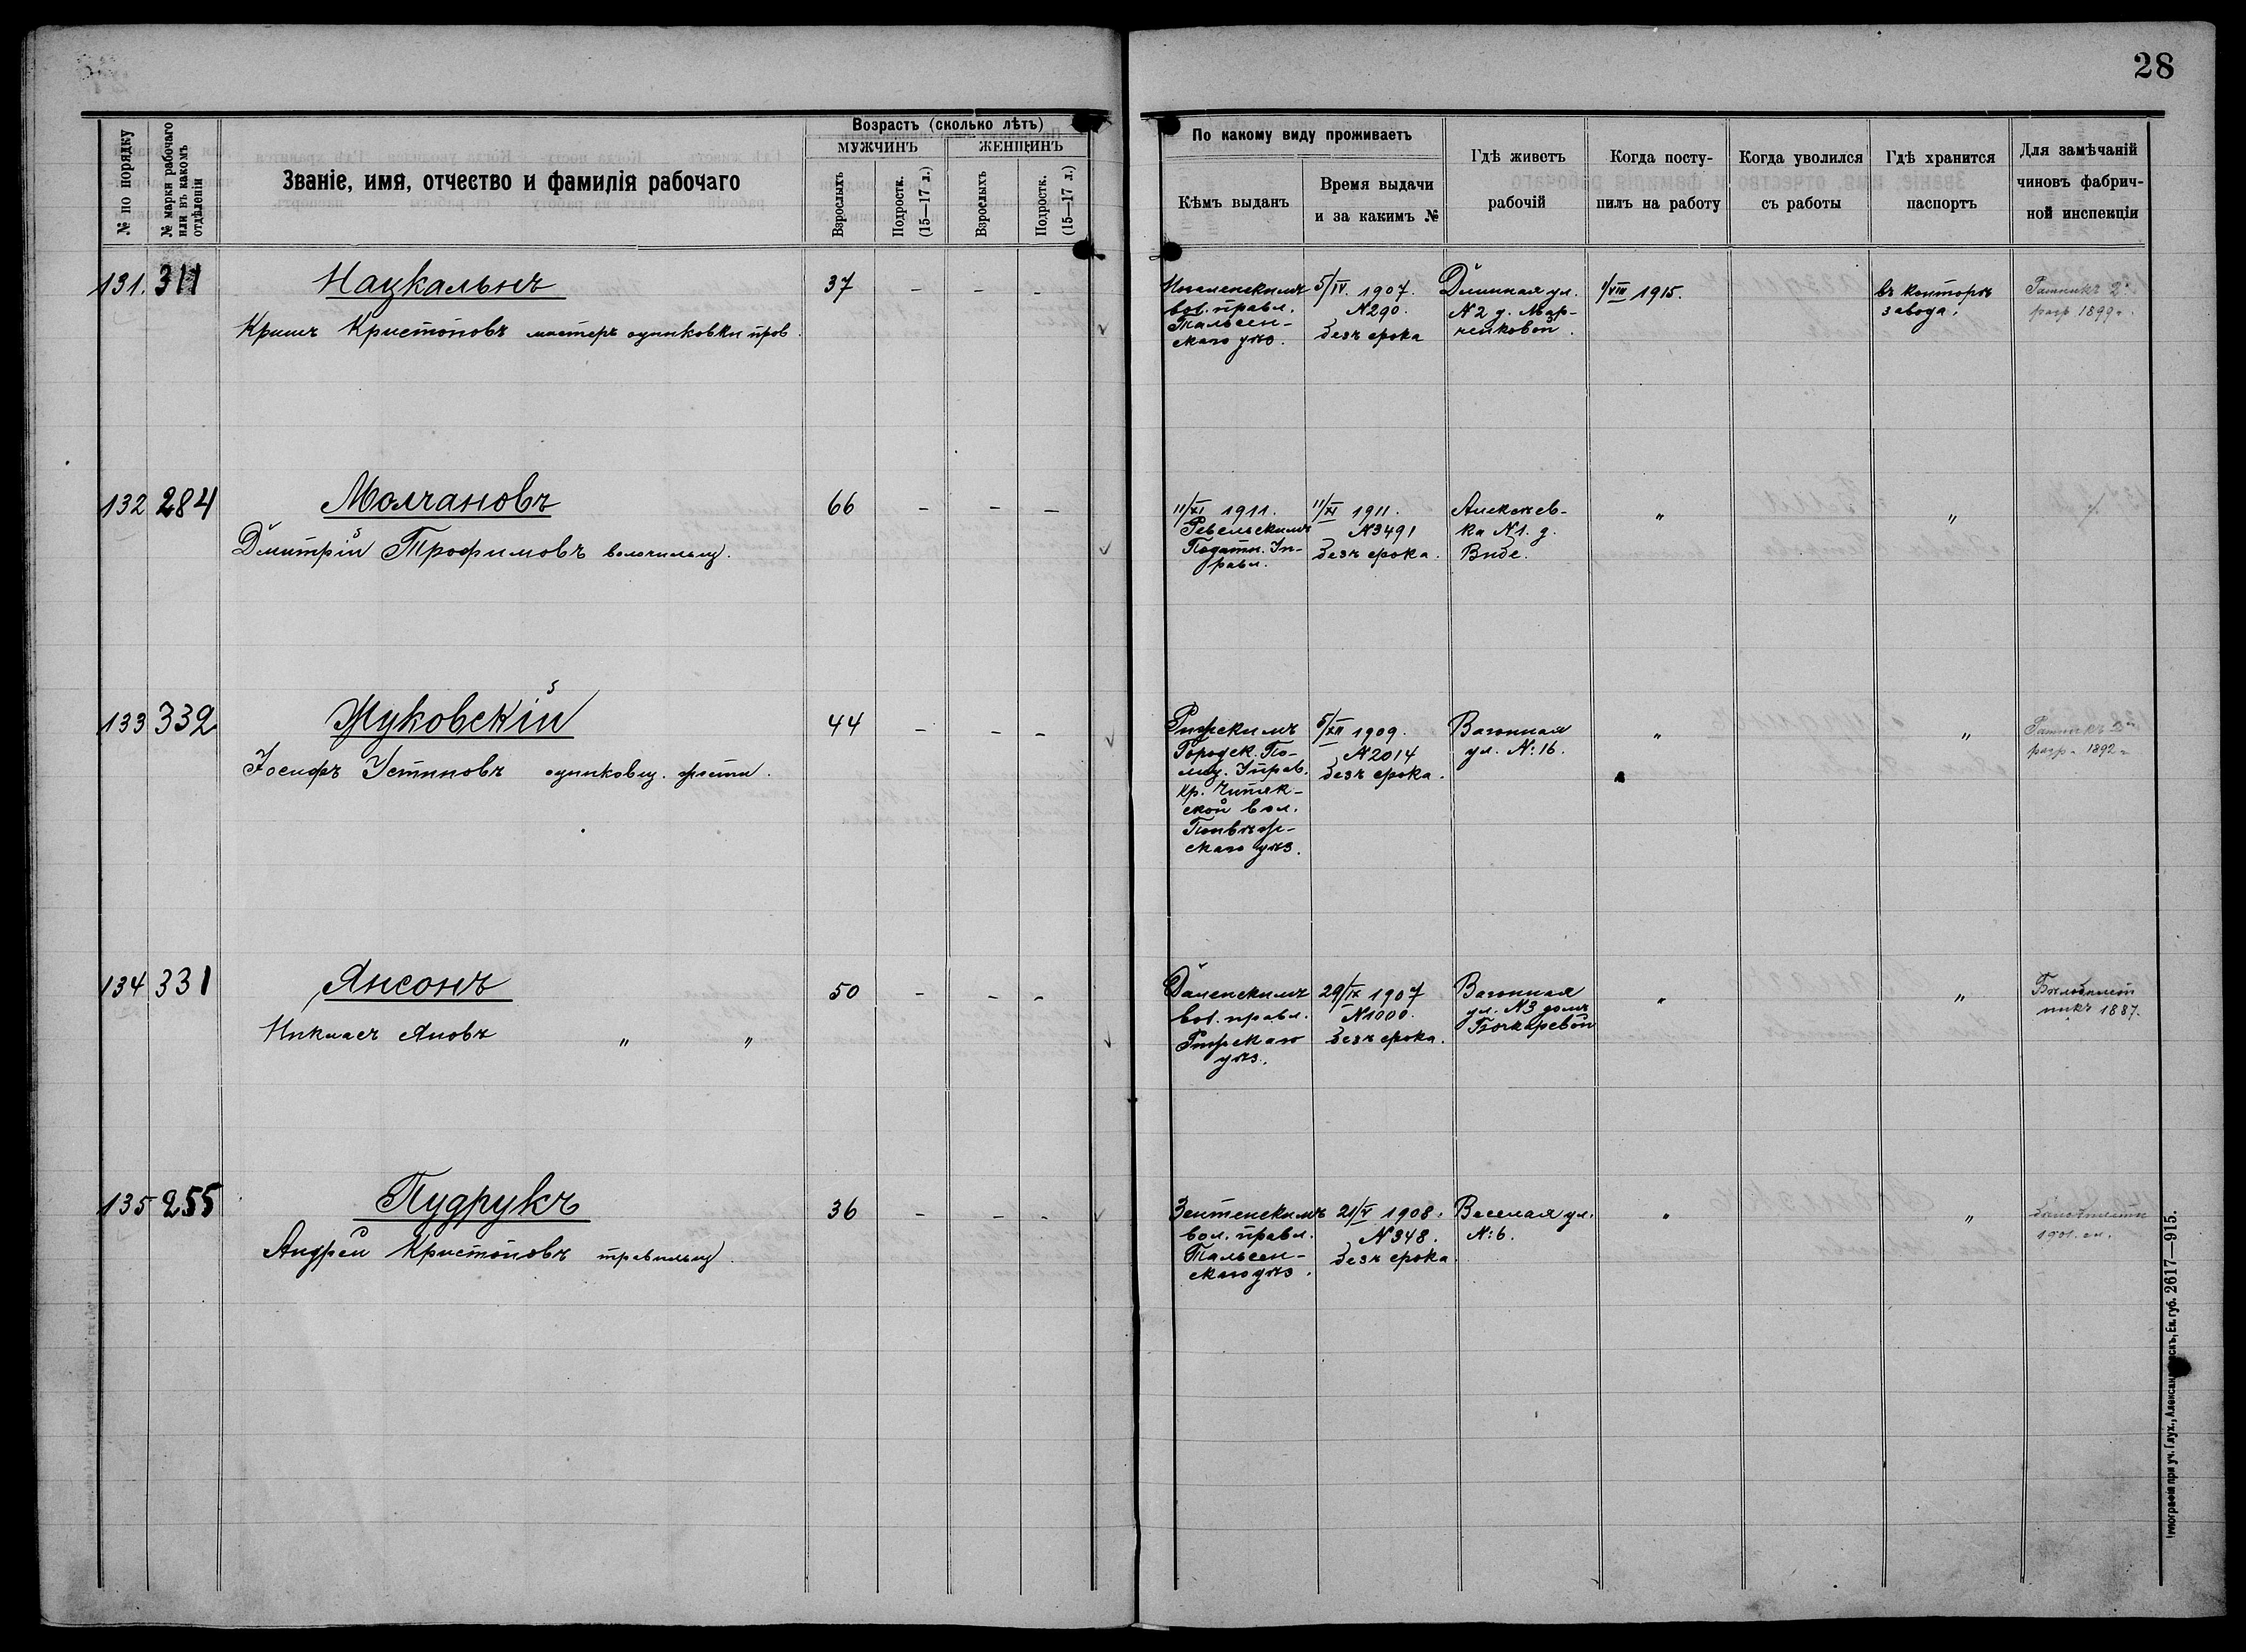 28
№ по порядку
№ марки рабочаго или въ какомъ отдѣленіи
Званіе, имя, отчество и фамилія рабочаго
Возрастъ (сколько лѣтъ)
МУЖЧИНЪ
ЖЕНЩИНЪ
Взрослыхъ
Подростк. (15—17 л.)
Взрослыхъ
Подростк. (15—17 л.)
По какому виду проживаетъ
Кѣмъ выданъ
Время выдачи
и за какимъ №
Гдѣ живетъ
рабочій
Когда посту-
пилъ на работу
Когда уволился
съ работы
Гдѣ хранится
паспортъ
Для замѣчаній
чиновъ фабрич-
ной инспекціи
131. 311
Нацкальнъ
Кришъ Кристоповъ мастеръ оцинковки пров.
37 - - -
вол. правл.
Тальсен-
скаго уѣз.
5/IV. 1907.
№290.
безъ срока
Длинная ул.
№2 д. Мар-
ченковой.
1/VIII 1915.
въ конторѣ
завода.
Ратникъ 2
разр 1899 г.
132 284
Молчановъ
Дмитрій Трофимовъ волочильщ.
66 - - -
11/XI 1911.
Ревельскимъ
Податн. Уп-
равл.
11/XI 1911.
№3491
безъ срока.
Алексѣев-
ка №1. д.
Виде.
„ „
133 332
Жуковскій
Іосифъ Устиновъ оцинковщ. жести.
44 - - -
Рижскимъ
Городск. По-
лиц. Управ.
кр.
ской вол.
Понѣвеж-
скаго уѣз.
5/XII 1909.
№2014
безъ срока.
Вагонная
ул. №16.
„ „
Ратникъ 2й
разр. 1892 г.
134 331
Янсонъ
Никласъ Яновъ „ „
50 - - -
Даленскимъ
вол. правл.
Рижскаго
уѣз.
29/IX 1907
№1000.
безъ срока.
Вагонная
ул. №3 домъ
Бочкаревой
„ „
Бѣлобилет
никъ 1887.
135 255
Пудрукъ
Андрей Кристоповъ правильщ.
36 - - -
Зентенскимъ
вол. правл.
Тальсен-
скаго уѣз.
21/V 1908.
№348.
безъ срока.
Веселая ул.
№6.
„ „
1901.
Типографія при уч. Глух., Александровскъ, Ек. губ. 2617—915.